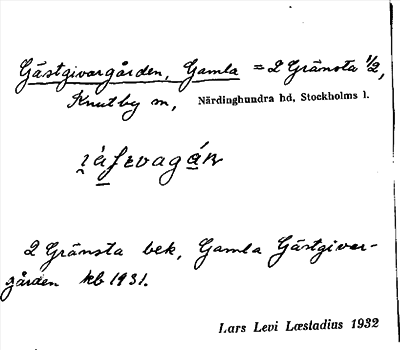 Gästgivargården, Gamla = 2 Gränsta 1/2,
Knutby m, Närdinghundra hd, Stockholms l.
2 Gränsta bek, Gamla Gästgivar-
gården kb 1931.
Lars Levi Læstadius 1932